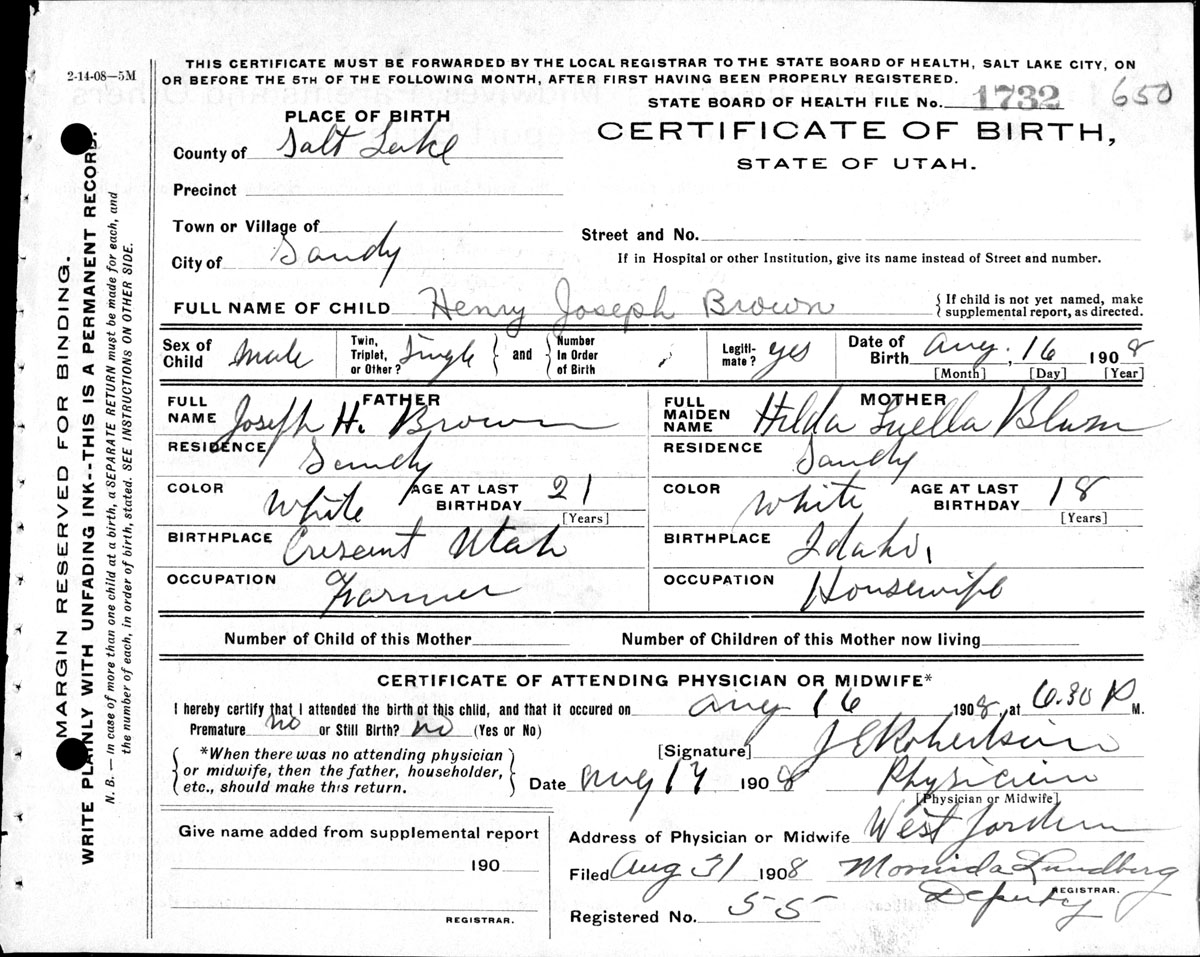 2-14-08—5M
THIS CERTIFICATE MUST BE FORWARDED BY THE LOCAL REGISTRAR TO THE STATE BOARD OF HEALTH, SALT LAKE CITY, ON
OR BEFORE THE 5TH OF THE FOLLOWING MONTH, AFTER FIRST HAVING BEEN PROPERLY REGISTERED.
STATE BOARD OF HEALTH FILE No. 1732 650
CERTIFICATE OF BIRTH,
STATE OF UTAH.
PLACE OF BIRTH
County of Salt Lake
Precinct
Town or Village of
City of Sandy
Street and No.
If in Hospital or other Institution, give its name instead of Street and number.
FULL NAME OF CHILD Henry Joseph Brown { If child is not yet named, make
supplemental report, as directed.
Sex of Child Male Twin, Triplet, or Other? Single and Number in Order of Birth Legiti-mate? yes Date of Birth Aug. 16 1908
[Month] [Day] [Year]
FATHER MOTHER
FULL NAME Joseph H. Brown FULL MAIDEN NAME Hilda Luella Blum
RESIDENCE Sandy RESIDENCE Sandy
COLOR White AGE AT LAST BIRTHDAY 21 [Years] COLOR White AGE AT LAST BIRTHDAY 18 [Years]
BIRTHPLACE Crescent Utah BIRTHPLACE Idaho
OCCUPATION Farmer OCCUPATION Housewife
Number of Child of this Mother Number of Children of this Mother now living
CERTIFICATE OF ATTENDING PHYSICIAN OR MIDWIFE*
I hereby certify that I attended the birth of this child, and that it occured on Aug 16 1908, at 6.30 P M.
Premature no or Still Birth? no (Yes or No)
*When there was no attending physician
or midwife, then the father, householder,
etc., should make this return.
[Signature] J E Robertson
Date Aug 17 1908 Physician
[Physician or Midwife]
Give name added from supplemental report
190
REGISTRAR.
Address of Physician or Midwife West Jordan
Filed Aug 31 1908 Lundberg
Deputy REGISTRAR.
Registered No. 55
MARGIN RESERVED FOR BINDING.
WRITE PLAINLY WITH UNFADING INK--THIS IS A PERMANENT RECORD.
N. B. — In case of more than one child at a birth, a SEPARATE RETURN must be made for each, and
the number of each, in order of birth, stated. SEE INSTRUCTIONS ON OTHER SIDE.